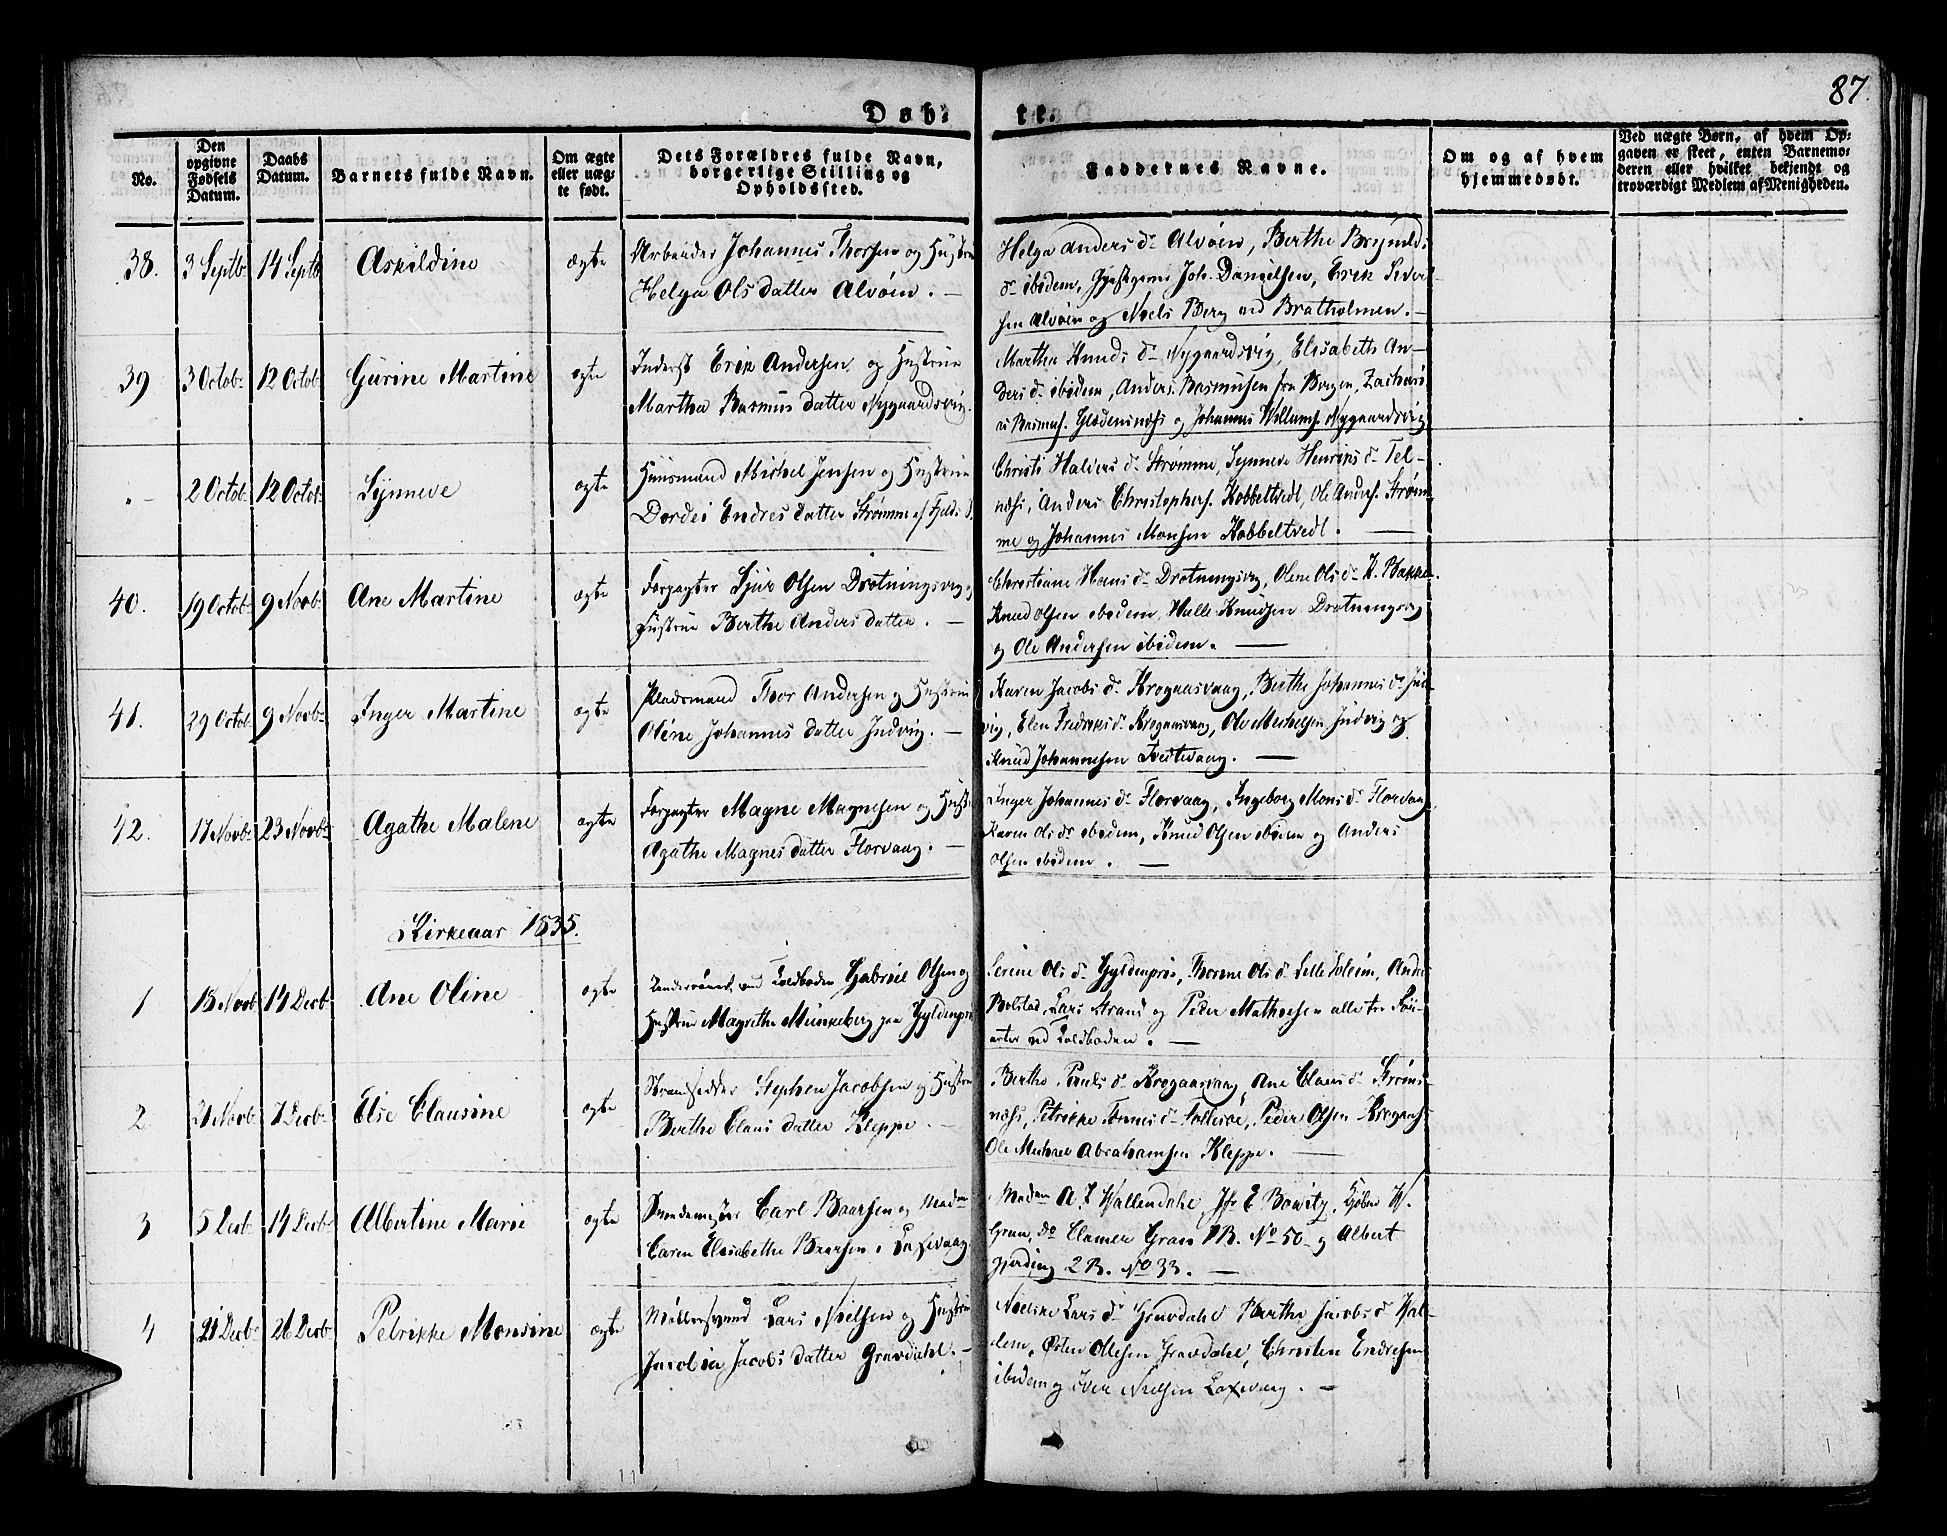 87.
Døb- te.
No.
Den opgivne Fødsels Datum.
Daabs Datum.
Barnets fulde Navn.
Om ægte eller uægte født.
Dets Forældres fulde Navn, borgerlige Stilling og Opholdssted.
Faddernes Navne.
Om og af hvem hjemmedøbt.
Ved uægte Børn, af hvem Opgaven er skeet, enten Barnemoderen eller hvilket bekjendt og troværdigt Medlem af Menigheden.
38. 3 Septb. 14 Septb. Askildine ægte
Arbeider Johannes Thorsen og Hustrue
Helga Ols datter Alvøen. —
Helga Anders d. Alvøen, Berthe Brynild.
d. ibidem, Joh. Danielsen, Erik Siver-
sen Alvøen og Niels Berg ved Bratholmen. —
39 3 Octob. 12 Octob. Gurine Martine ægte
Inderst Erik Andersen og Hustrue
Martha Rasmus datter Nygaardsvig.
Martha Knuds d. Nygaardsvig, Elisabeth An-
ders d. ibidem, Anders Rasmusen fra Bergen, Zachari-
as Rasmus. og Johannes Willums. Nygaardsvig
" — 2 Octob. 12 Octob. Synneve ægte
Huusmand Mickel Jensen og Hustrue
Dordei Endres datter Strømme af Fjelds S.
Christi Halvers d. Strømme, Synneve Henriks d. Tel-
næss, Anders Christophers. Kobbeltvedt, Ole Anders. Strøm-
me og Johannes Monsen Kobbeltvedt. —
40. 19 Octob. 9 Novb. Ane Martine ægte
Forpagter Sjur Olsen Drotningsvig og
Hustrue Berthe Anders datter. —
Christiane Hans d. Drotningsvig, Olene Ols d. K. Bakke
Knud Olsen ibidem, Halle Knudsen Drotningsvig
og Ole Andersen ibidem. —
41. 29 Octob. 9 Novb. Inger Martine ægte
Pladsmand Thor Andersen og Hustrue
Oline Johannes datter Indvig. —
Karen Jacobs d. Krogaasvaag, Berthe Johannes d. Ind-
vig, Elen Fredriks d. Krogaasvaag, Ole Mickelsen Indvig og
Knud Johannesen Tvedtevaag. —
42. 17 Novb. 23 Novb. Agathe Malene ægte
Forpagter Magne Magnesen og Hustr.
Agathe Magnes datter Florvaag. —
Inger Johannes d. Florvaag, Ingeborg Mons d. Florvaag
Karen Ols d. ibidem, Knud Olsen ibidem og Anders
Olsen ibidem. —
Kirkeaar 1835.
1 13 Novb. 14 Decb. Ane Oline ægte
ved Toldboden Gabriel Olsen og
Hustrue Magrethe Munkeberg paa Gyldenpris
Serine Ols d. Gyldenpris, Thorine Ols d. Lille Soleim, Andr.
Bolstad, Lars Strand og Peder Mathesen alle tre
ved Toldboden. —
2 21 Novb. 7 Decb. Else Clausine ægte
Strandsidder Stephen Jacobsen og Hustrue
Berthe Claus datter Kleppe. —
Berthe Pauls d. Krogaasvaag, Ane Claus d. Strøms-
næss, Petrikke Tønnes d. Follesøe, Peder Olsen Krogaas-
Ole Michael Abrahamsen Kleppe. —
3 5 Decb. 14 Decb. Albertine Marie ægte
Carl Baarsen og Madm
Caren Elisabethe Baarsen i Laxevaag.
Madam A. Wallendahl, Jfr. E Bowitz, Kjøbm. W.
Gran, do. Clamer Gran R. No 50 og Albert
Gjerding 2 R. No 33. —
4 21 Decb. 26 Decb. Petrikke Monsine ægte
Møllersvend Lars Nielsen og Hustrue
Jacobia Jacobs datter Gravdahl. —
Lars d. Gravdahl Berthe Jacobs d. Hal-
dem, Østen Ollesen Gravdahl, Christen Endresen
ibidem og Iver Nielsen Laxevaag. —